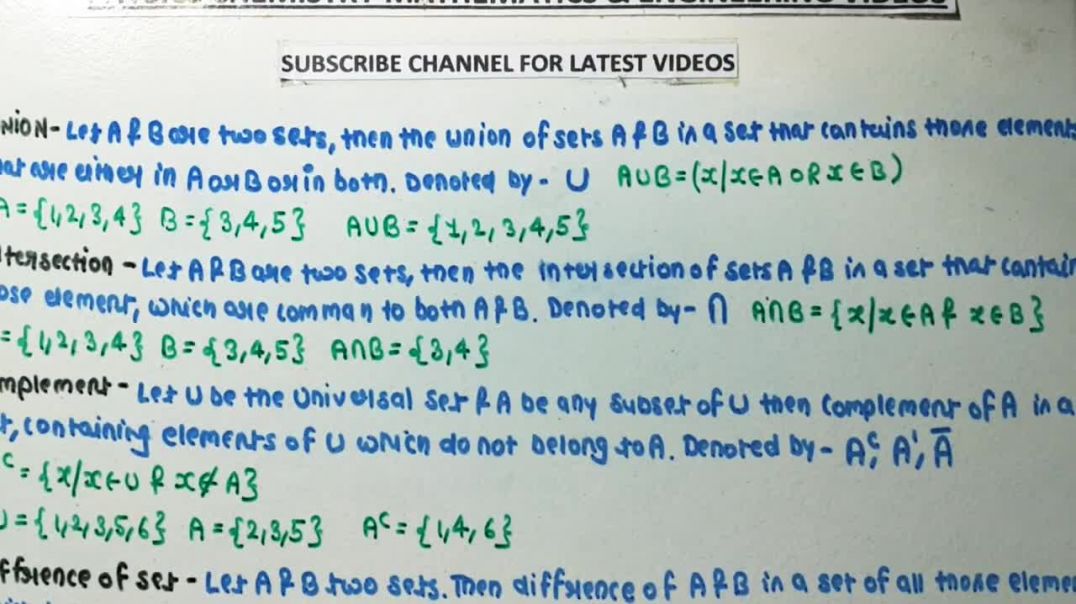 PHYSICS CHEMISTRY MATHEMATICS & ENGINEERING VIDEOS
SUBSCRIBE CHANNEL FOR LATEST VIDEOS
NION - Let A & B are two sets, then the union of sets A & B in a set that contains those elements
hat are either in A or B or in both. Denoted by - ∪ A∪B = (x/x∈A OR x∈B)
A = {1,2,3,4} B = {3,4,5} A∪B = {1,2,3,4,5}
tersection - Let A & B are two sets, then the intersection of sets A & B in a set that contain
ose element, which are comman to both A & B. Denoted by - ∩ A∩B = {x/x∈A & x∈B}
= {1,2,3,4} B = {3,4,5} A∩B = {3,4}
mplement - Let U be the Universal set & A be any subset of U then complement of A in a
t, containing elements of U which do not belong to A. Denoted by - Aᶜ, A', Ā
ᶜ = {x/x∈U & x∉A}
U = {1,2,3,5,6} A = {2,3,5} Aᶜ = {1,4,6}
fference of set - Let A & B two sets. Then difference of A & B in a set of all those eleme